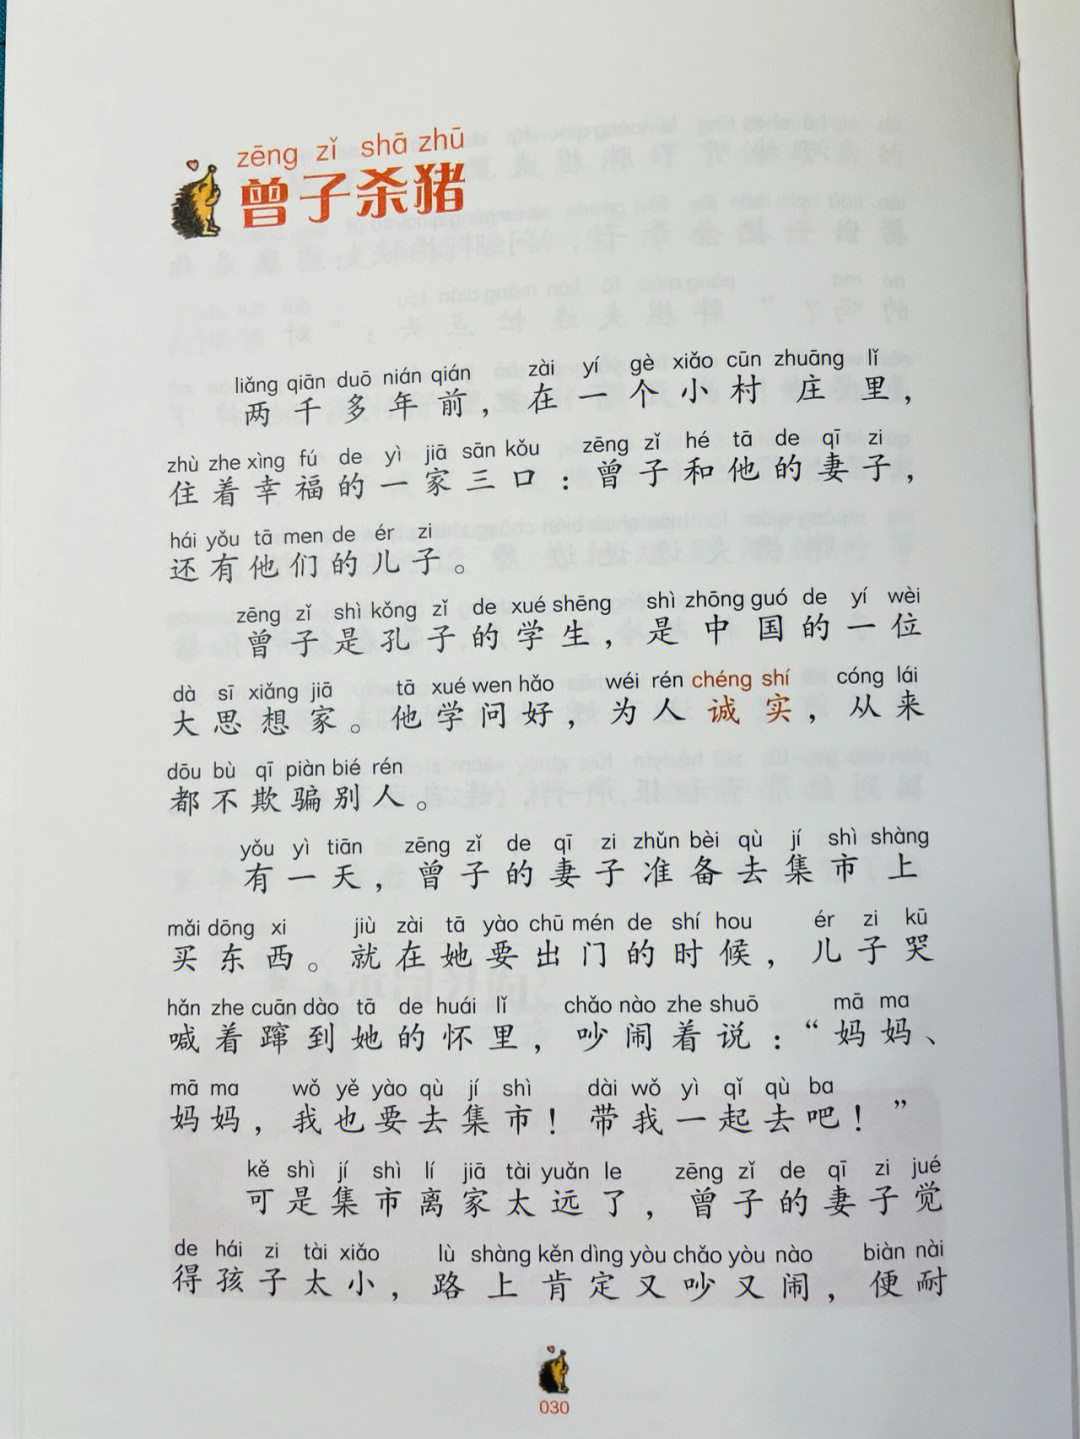 zēng zǐ shā zhū
曾子杀猪
liǎng qiān duō nián qián zài yí gè xiǎo cūn zhuāng lǐ
两千多年前，在一个小村庄里，
zhù zhe xìng fú de yì jiā sān kǒu zēng zǐ hé tā de qī zi
住着幸福的一家三口：曾子和他的妻子，
hái yǒu tā men de ér zi
还有他们的儿子。
zēng zǐ shì kǒng zǐ de xué shēng shì zhōng guó de yí wèi
曾子是孔子的学生，是中国的一位
dà sī xiǎng jiā tā xué wen hǎo wéi rén chéng shí cóng lái
大思想家。他学问好，为人诚实，从来
dōu bù qī piàn bié rén
都不欺骗别人。
yǒu yì tiān zēng zǐ de qī zi zhǔn bèi qù jí shì shàng
有一天，曾子的妻子准备去集市上
mǎi dōng xi jiù zài tā yào chū mén de shí hou ér zi kū
买东西。就在她要出门的时候，儿子哭
hǎn zhe cuān dào tā de huái lǐ chǎo nào zhe shuō mā ma
喊着蹿到她的怀里，吵闹着说：“妈妈、
mā ma wǒ yě yào qù jí shì dài wǒ yì qǐ qù ba
妈妈，我也要去集市！带我一起去吧！”
kě shì jí shì lí jiā tài yuǎn le zēng zǐ de qī zi jué
可是集市离家太远了，曾子的妻子觉
de hái zi tài xiǎo lù shàng kěn dìng yòu chǎo yòu nào biàn nài
得孩子太小，路上肯定又吵又闹，便耐
030